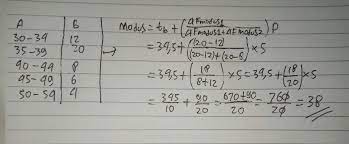 A B
30-34 12
35-39 20
40-44 8
45-49 6
50-54 4
Modus = tb + (ΔFmodus1 / ΔFmodus1+ΔFmodus2) P
= 39,5 + ((20-12) / (20-12)+20-8) × 5
= 39,5 + (18 / 8+12) × 5 = 39,5 + (18 / 20) × 5
= 395/10 + 90/20 = 670+90/20 = 760/20 = 38